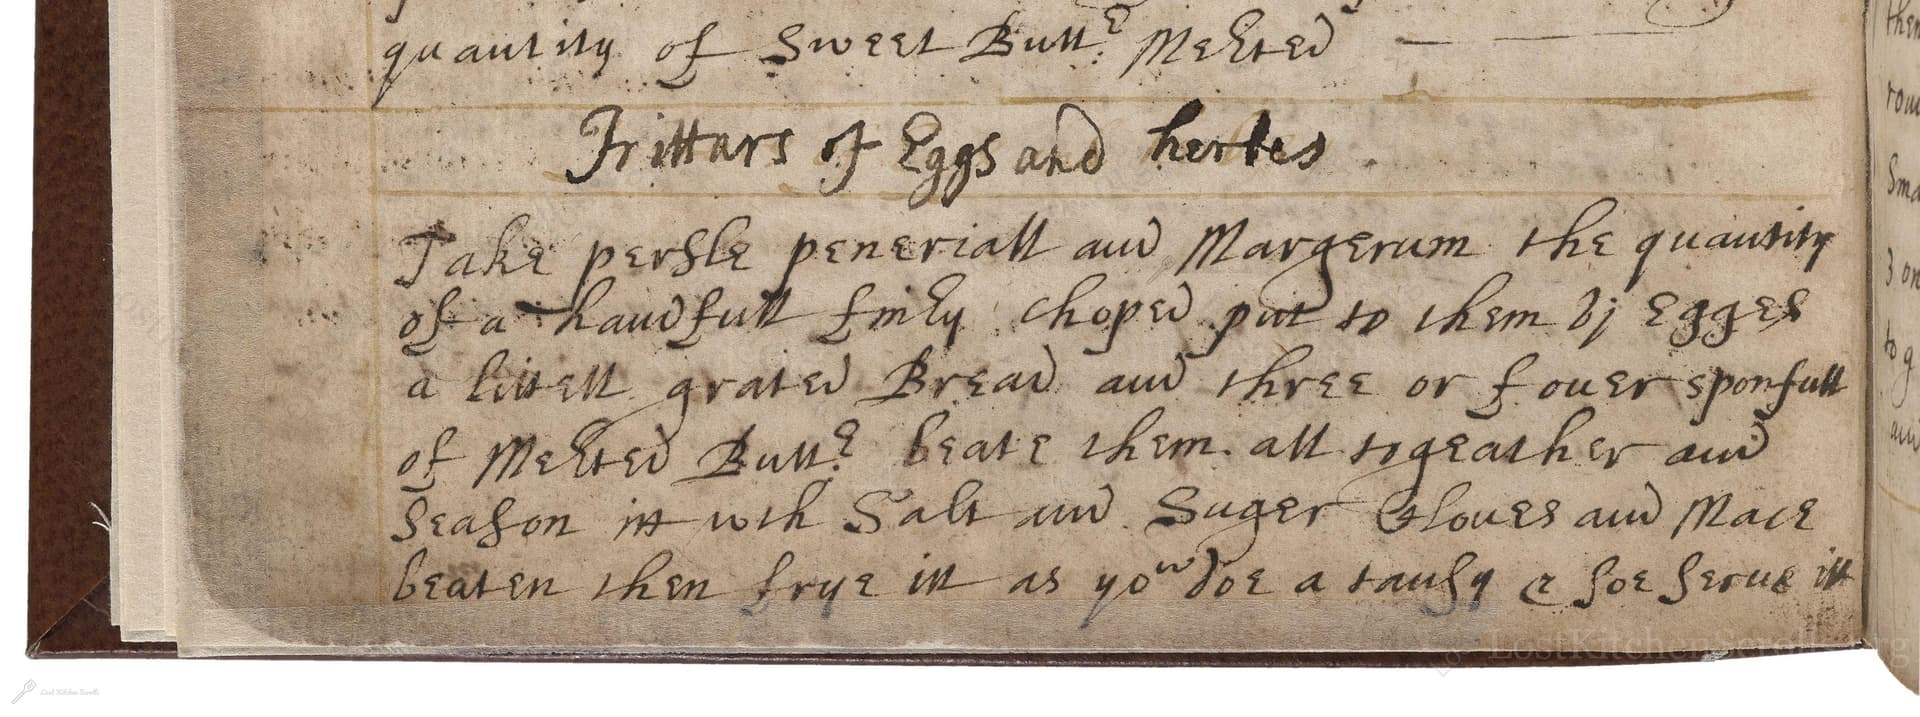 quantity of Sweet Buttᵉ: Melted
Frittars of Eggs and herbes
Take persle peneriall and Margerum the quantity
of a handfull finly choped put to them vj Egges
a littell grated Bread and three or fouer sponfull
of Melted Buttᵉ: beate them all togeather and
Season itt wth Salt and Suger Cloues and Mace
beaten then frye itt as yoᵘ doe a tansy & soe serue itt
then
Sma
3 on
to g
LostKitchenScrolls.org
Lost Kitchen Scrolls